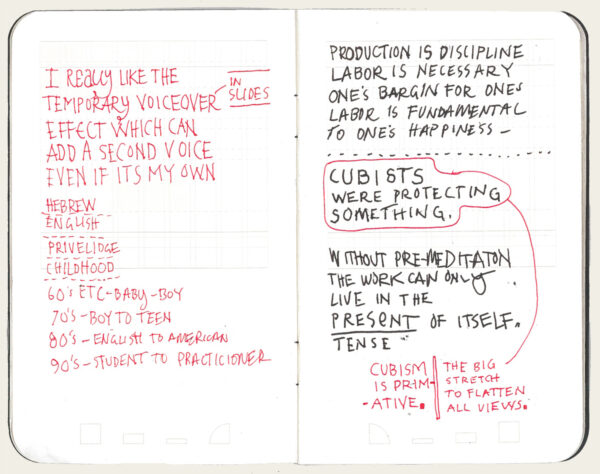 I REALLY LIKE THE
TEMPORARY VOICEOVER
IN
SLIDES
EFFECT WHICH CAN
ADD A SECOND VOICE
EVEN IF ITS MY OWN
HEBREW
ENGLISH
PRIVELIDGE
CHILDHOOD
60's ETC-BABY-BOY
70's - BOY TO TEEN
80's - ENGLISH TO AMERICAN
90's - STUDENT TO PRACTICIONER
PRODUCTION IS DISCIPLINE
LABOR IS NECESSARY
ONE'S BARGIN FOR ONES
LABOR IS FUNDAMENTAL
TO ONE'S HAPPINESS -
CUBISTS
WERE PROTECTING
SOMETHING.
WITHOUT PRE-MEDITATON
THE WORK CAN ONLY
LIVE IN THE
PRESENT OF ITSELF.
TENSE "
CUBISM
IS PRIM-
-ATIVE.
THE BIG
STRETCH
TO FLATTEN
ALL VIEWS.